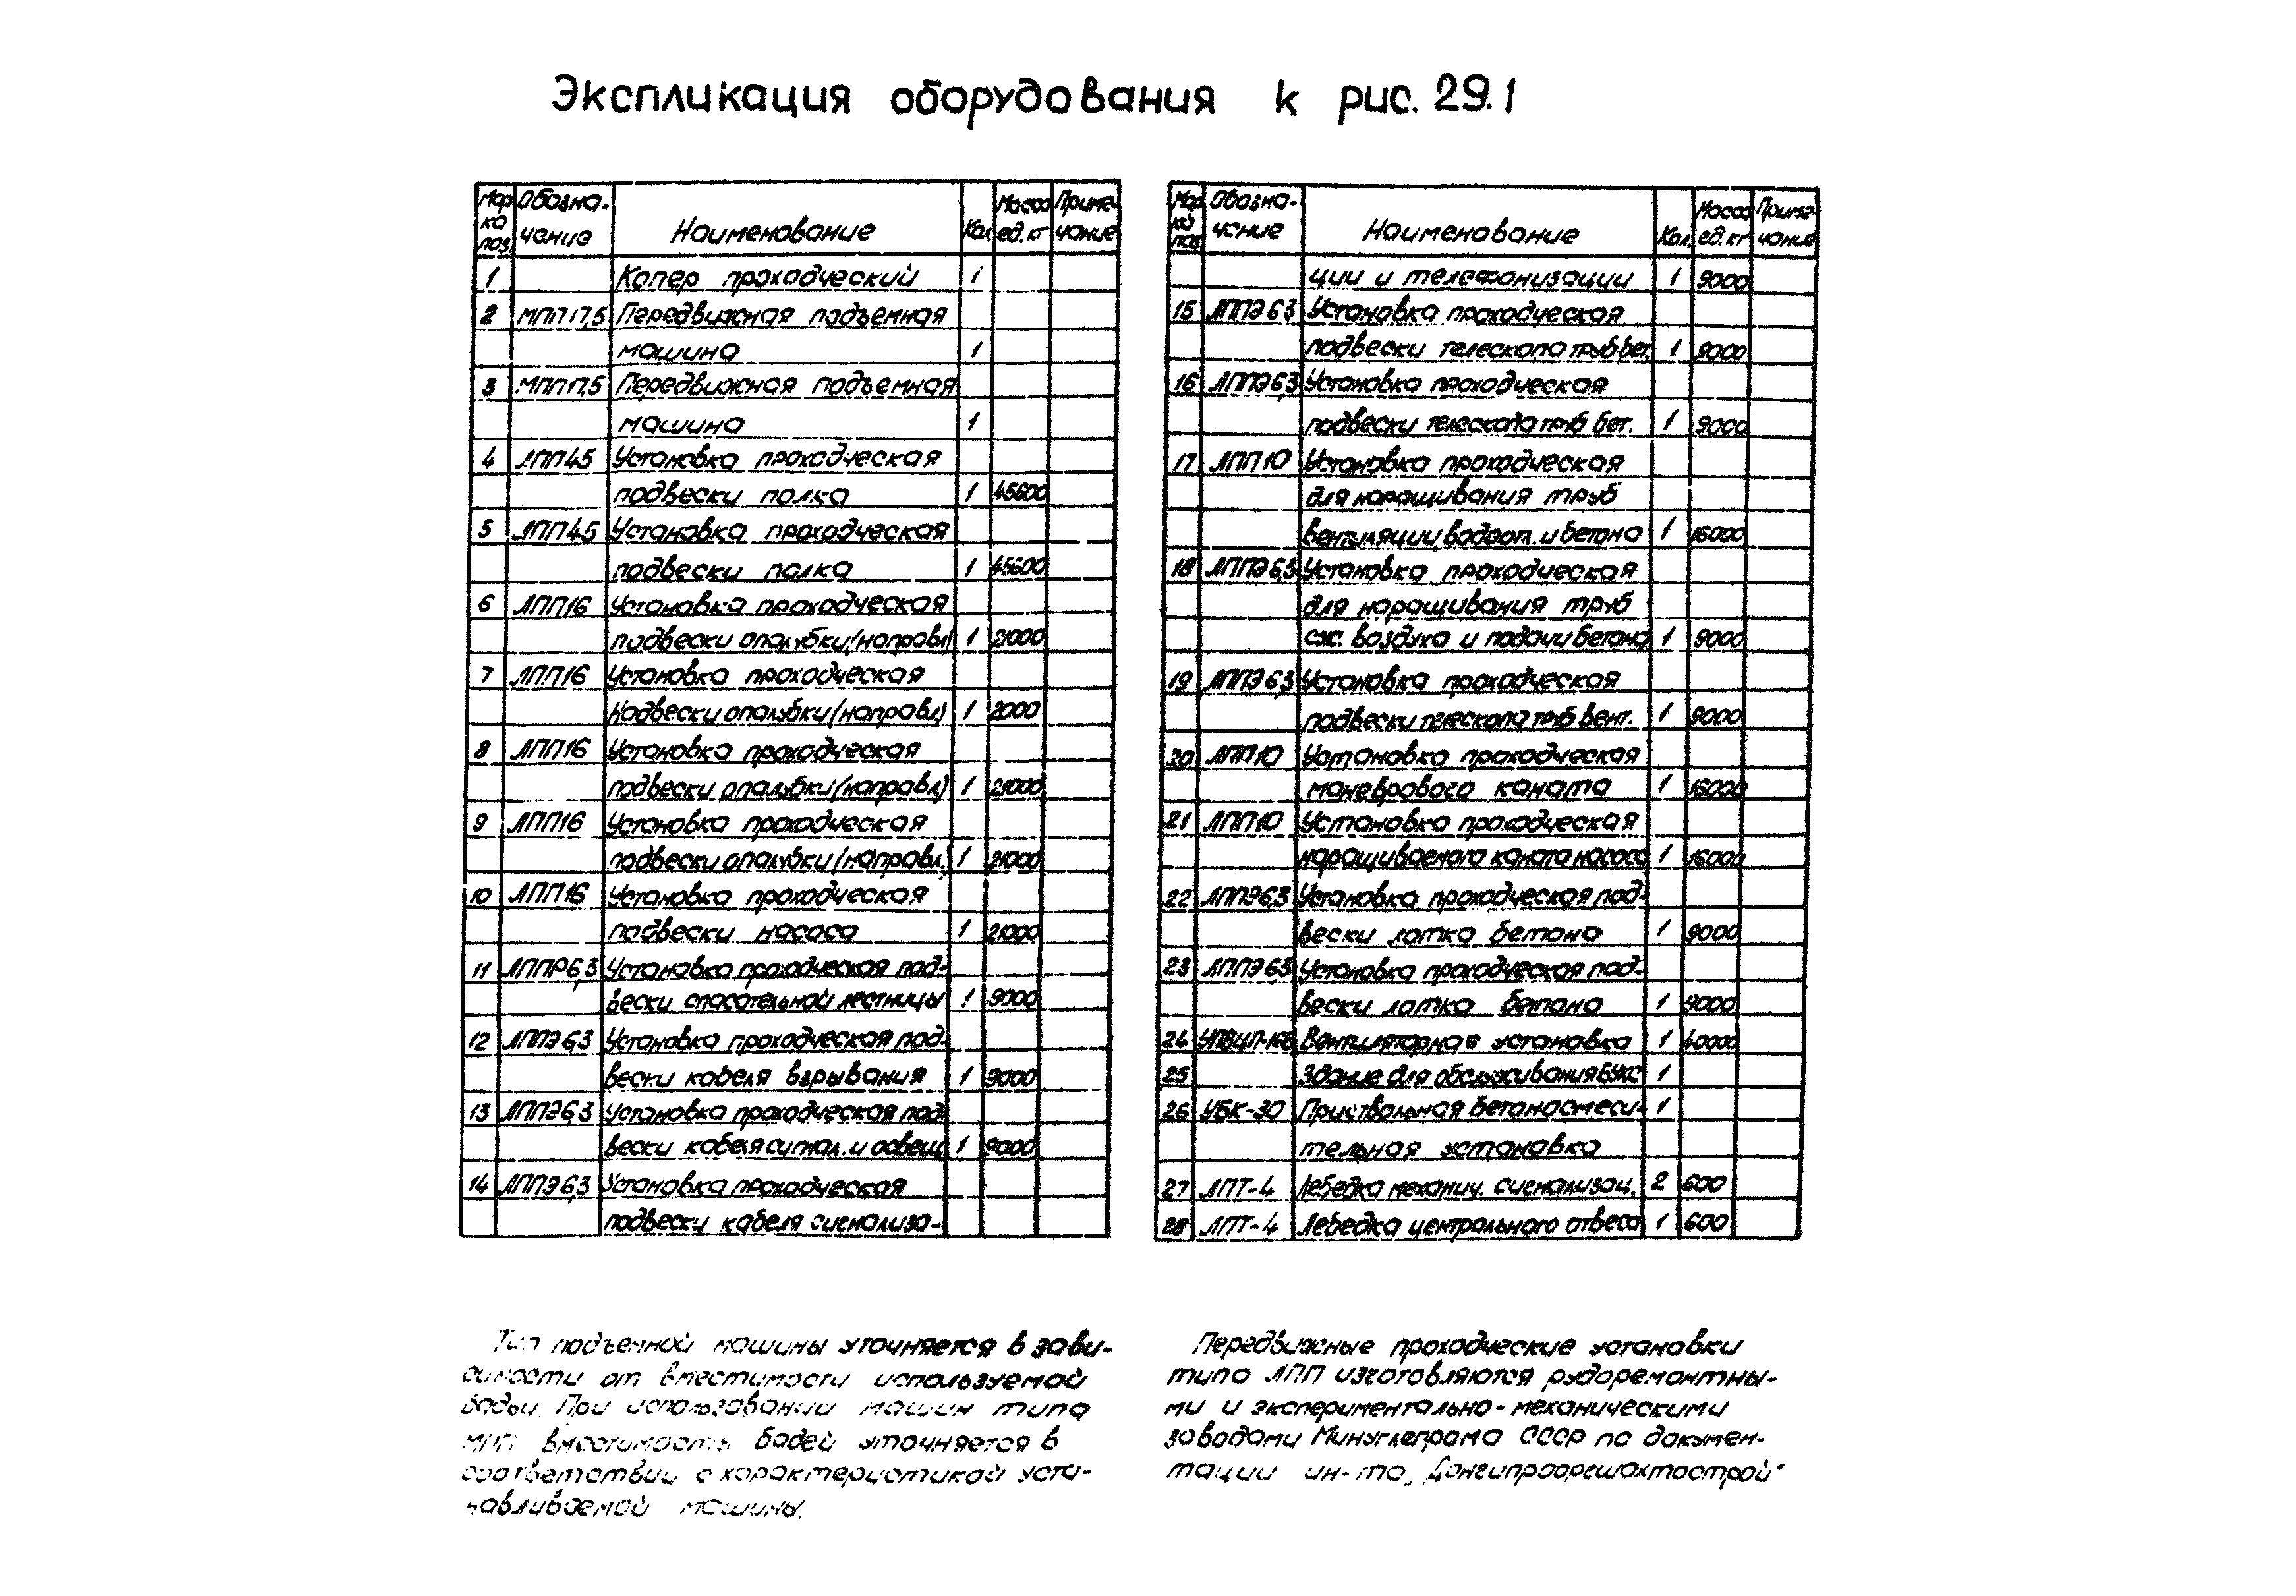 Экспликация оборудования к рис. 29.1
Мар- Обозна- Масса Приме-
ка Наименование Кол. ед. кг чание
поз. чение
1 Копер проходческий 1
2 МПП17,5 Передвижная подъемная
машина 1
3 МПП17,5 Передвижная подъемная
машина 1
4 ЛПП45 Установка проходческая
подвески полка 1 45600
5 ЛПП45 Установка проходческая
подвески полка 1 45600
6 ЛПП16 Установка проходческая
подвески опалубки(направл) 1 21000
7 ЛПП16 Установка проходческая
подвески опалубки(направл) 1 2000
8 ЛПП16 Установка проходческая
подвески опалубки(направл) 1 21000
9 ЛПП16 Установка проходческая
подвески опалубки(направл.) 1 21000
10 ЛПП16 Установка проходческая
подвески насоса 1 21000
11 ЛППР6,3 Установка проходческая под-
вески спасательной лестницы 1 9000
12 ЛППЭ6,3 Установка проходческая под-
вески кабеля взрывания 1 9000
13 ЛППЭ6,3 Установка проходческая под-
вески кабеля сигнал. и освещ. 1 9000
14 ЛППЭ6,3 Установка проходческая
подвески кабеля сигнализа-
Мар- Обозна- Масса Приме-
ка чение Наименование Кол. ед. кг чание
поз.
ции и телефонизации 1 9000
15 ЛППЭ6,3 Установка проходческая
подвески телескопа труб бет. 1 9000
16 ЛППЭ6,3 Установка проходческая
подвески телескопа труб бет. 1 9000
17 ЛПП10 Установка проходческая
для наращивания труб
вентиляции, водоот. и бетона 1 16000
18 ЛППЭ6,3 Установка проходческая
для наращивания труб
сж. воздуха и подачи бетона 1 9000
19 ЛППЭ6,3 Установка проходческая
подвески телескопа труб вент. 1 9000
20 ЛПП10 Установка проходческая
маневрового каната 1 16000
21 ЛПП10 Установка проходческая
наращиваемого каната насоса 1 16000
22 ЛППЭ6,3 Установка проходческая под-
вески лотка бетона 1 9000
23 ЛППЭ6,3 Установка проходческая под-
вески лотка бетона 1 9000
24 Вентиляторная установка 1 40000
25 Здание для обслуживания БУКС 1
26 УБК-30 Приствольная бетоносмеси- 1
тельная установка
27 ЛПТ-4 Лебедка механич. сигнализац. 2 600
28 ЛПТ-4 Лебедка центрального отвеса 1 600
Тип подъемной машины уточняется в зави-
симости от вместимости используемой
бадьи. При использовании машин типа
МПП вместимость бадей уточняется в
соответствии с характеристикой уста-
навливаемой машины.
Передвижные проходческие установки
типа ЛПП изготовляются рудоремонтны-
ми и экспериментально-механическими
заводами Минуглепрома СССР по докумен-
тации ин-та "Донгипрооргшахтострой"